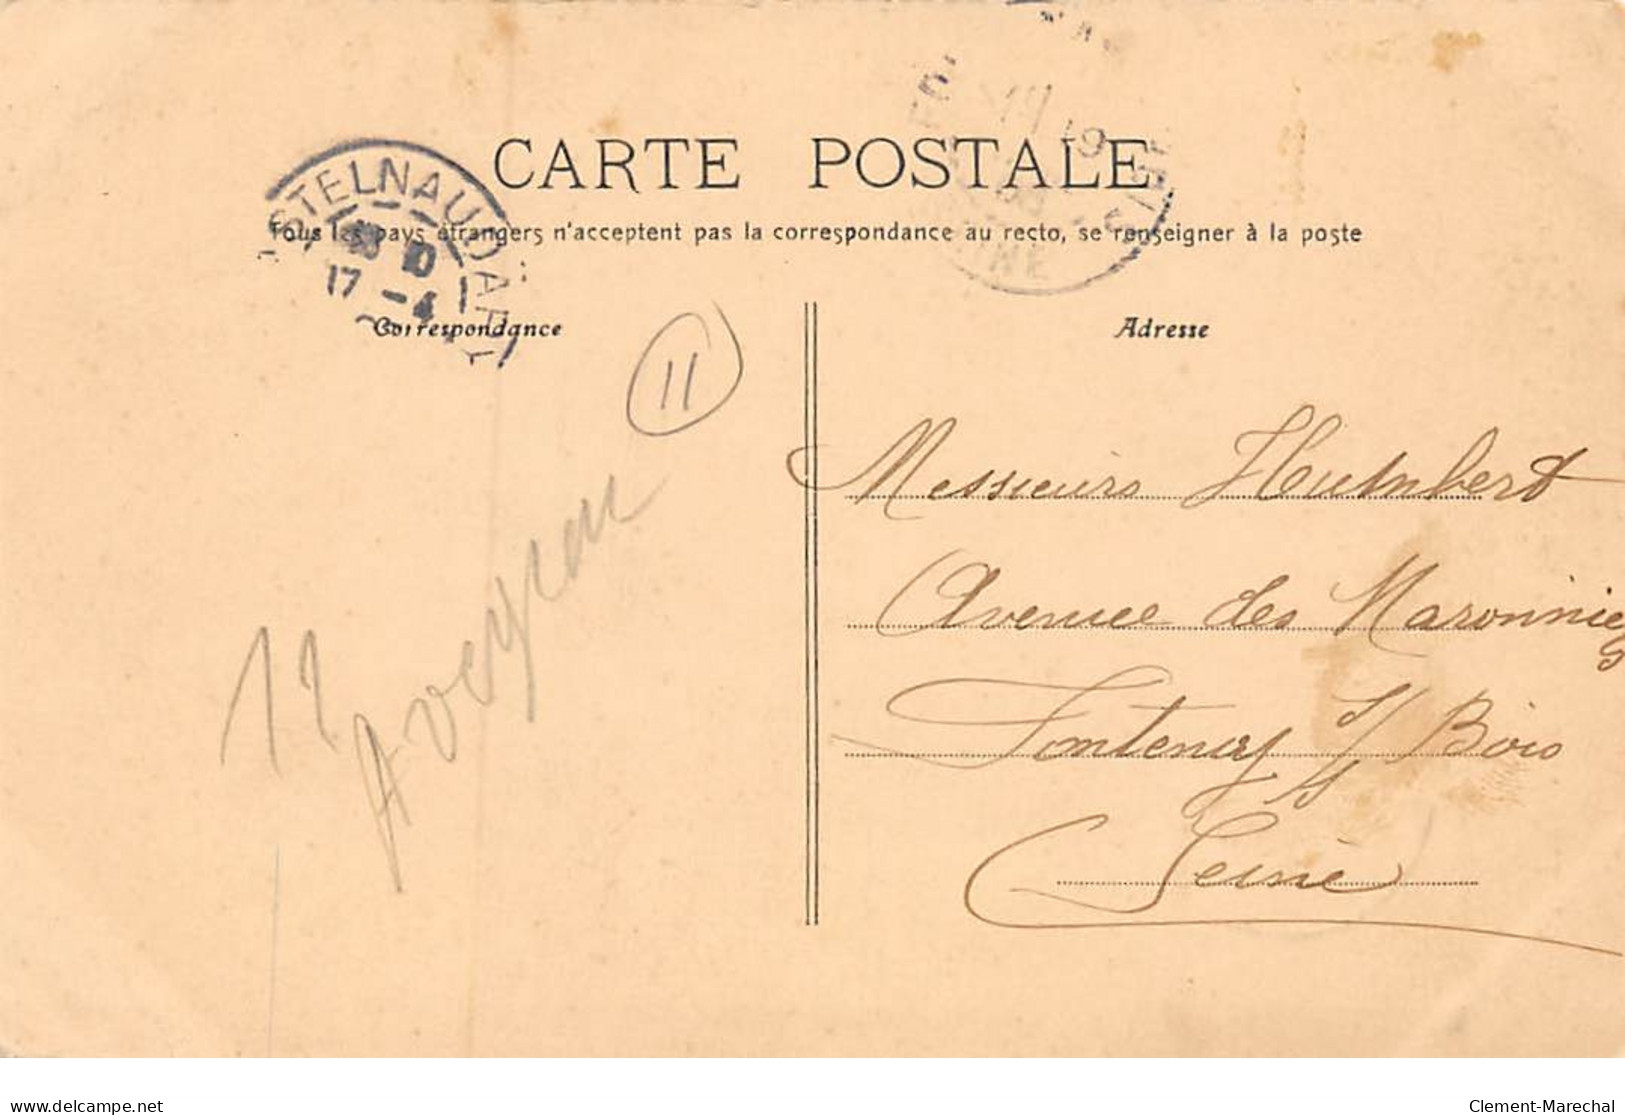 CARTE POSTALE
STELNAUDARY
17 -4
Tous les pays étrangers n'acceptent pas la correspondance au recto, se renseigner à la poste
Correspondance
Adresse
11
12
Aveyron
Messieurs Humbert
Avenue des Maronniers
Fontenay s/s Bois
Seine
delcampe.net
Clement-Marechal